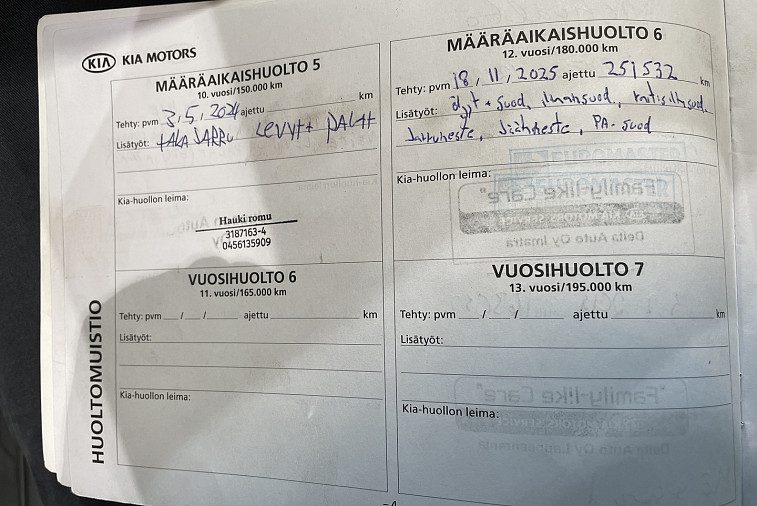 KIA KIA MOTORS
MÄÄRÄAIKAISHUOLTO 5
10. vuosi/150.000 km
Tehty: pvm 3,5,2024 ajettu km
Lisätyöt: TAKA JARRU LEVYtt PALAtt
Kia-huollon leima:
Hauki romu
3187163-4
0456135909
MÄÄRÄAIKAISHUOLTO 6
12. vuosi/180.000 km
Tehty: pvm 18, 11, 2025 ajettu 251532 km
Lisätyöt: öljyt + suod, ilmansuod., raitisilmsuod.
Jarruneste, Jäähneste, PA-suod
Kia-huollon leima:
VUOSIHUOLTO 6
11. vuosi/165.000 km
Tehty: pvm / / ajettu km
Lisätyöt:
Kia-huollon leima:
VUOSIHUOLTO 7
13. vuosi/195.000 km
Tehty: pvm / / ajettu km
Lisätyöt:
Kia-huollon leima:
HUOLTOMUISTIO